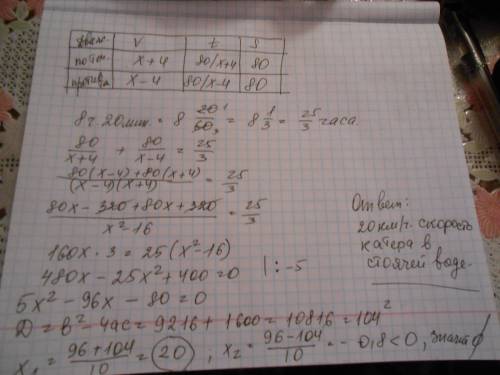 движ. V t S
по теч. x+4 80/x+4 80
против теч. x-4 80/x-4 80
8 ч. 20 мин. = 8 20/60 = 8 1/3 = 25/3 часа.
80/(x+4) + 80/(x-4) = 25/3
(80(x-4)+80(x+4))/((x-4)(x+4)) = 25/3
(80x - 320 + 80x + 320)/(x²-16) = 25/3
160x · 3 = 25(x²-16)
480x - 25x² + 400 = 0 |: -5
5x² - 96x - 80 = 0
D = b² - 4ac = 9216 + 1600 = 10816 = 104²
x₁ = (96+104)/10 = 20, x₂ = (96-104)/10 = -0,8 < 0, значит ∅
Ответ:
20 км/ч. скорость
катера в
стоячей воде.